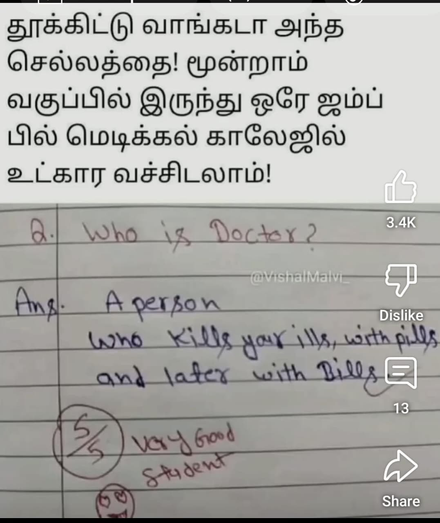 தூக்கிட்டு வாங்கடா அந்த
செல்லத்தை! மூன்றாம்
வகுப்பில் இருந்து ஒரே ஜம்ப்
பில் மெடிக்கல் காலேஜில்
உட்கார வச்சிடலாம்!
3.4K
Q. Who is Doctor?
@VishalMalvi_
Dislike
Ans. A person
who kills your ills, with pills
and later with Bills.
13
5/5 Very Good
Student
Share